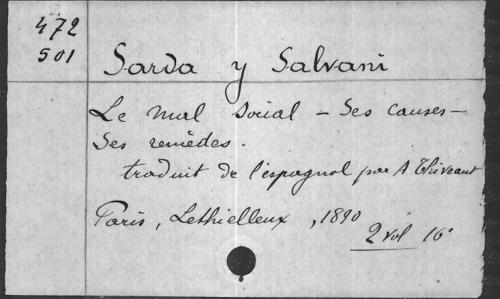 472
501
Sarda y Salvani
Le mal social - Ses causes -
Ses remèdes.
traduit de l'espagnol par A Thiveaut
Paris, Lethielleux, 1890
2 vol 16°